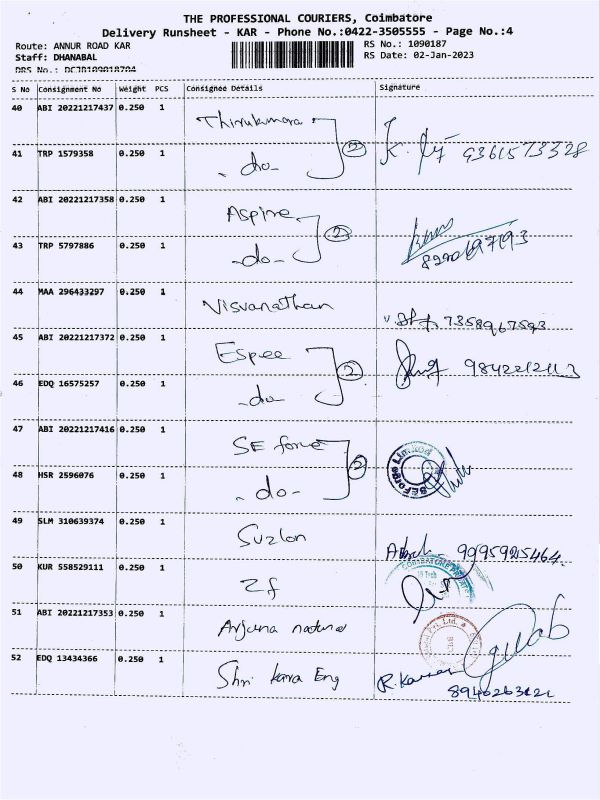 THE PROFESSIONAL COURIERS, Coimbatore
Delivery Runsheet - KAR - Phone No.:0422-3505555 - Page No.:4
Route: ANNUR ROAD KAR
RS No.: 1090187
Staff: DHANABAL
RS Date: 02-Jan-2023
S No Consignment No Weight PCS Consignee Details Signature
40 ABI 20221217437 0.250 1 Thirukumara
41 TRP 1579358 0.250 1 - do - 2 9361573328
42 ABI 20221217358 0.250 1 Aspire
43 TRP 5797886 0.250 1 - do - 2
44 MAA 296433297 0.250 1 Visvanathan 7358967593
45 ABI 20221217372 0.250 1 Espee
46 EDQ 16575257 0.250 1 - do - 2
47 ABI 20221217416 0.250 1 SE forge
48 HSR 2596076 0.250 1 - do - 2 SE Forge Limited
49 SLM 310639374 0.250 1 Suzlon 9995925464
50 KUR 558529111 0.250 1 Zf
51 ABI 20221217353 0.250 1 Arjuna natural
52 EDQ 13434366 0.250 1 Shri kara Eng